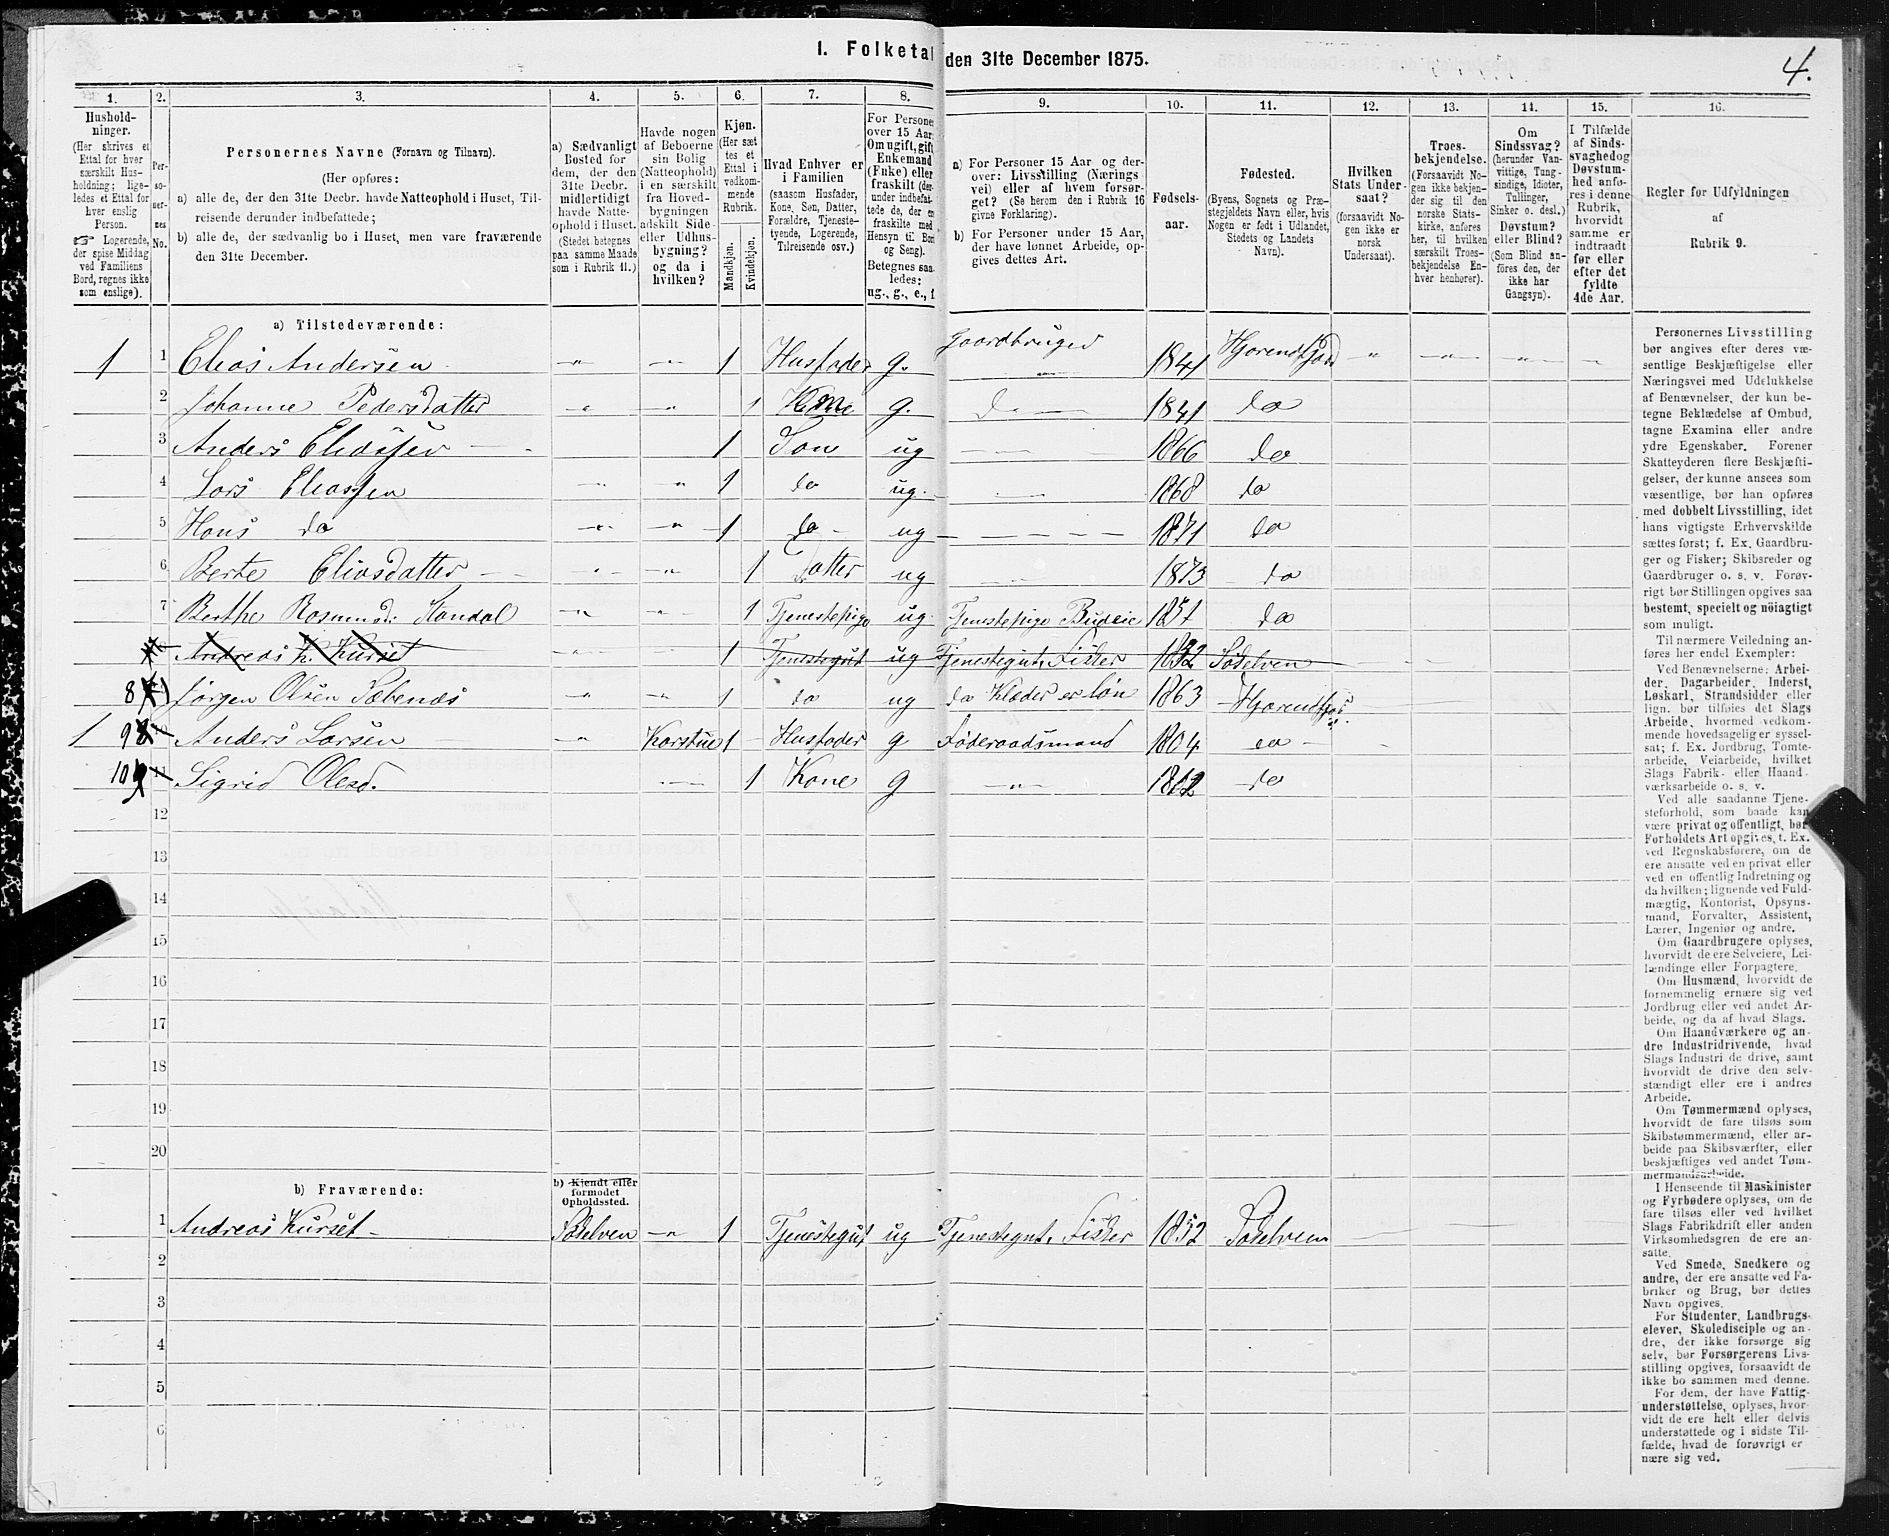 I. Folketal den 31te December 1875.
4.
1. 2. 3. 4. 5. 6. 7. 8. 9. 10. 11. 12. 13. 14. 15. 16.
Husholdninger. (Her skrives et Ettal for hver særskilt Husholdning; ligeledes et Ettal for hver enslig Person. ☞ Logerende, der spise Middag ved Familiens Bord, regnes ikke som enslige).
Personernes No.
Personernes Navne (Fornavn og Tilnavn).
(Her opføres:
a) alle de, der den 31te Decbr. havde Natteophold i Huset, Tilreisende derunder indbefattede;
b) alle de, der sædvanlig bo i Huset, men vare fraværende den 31te December.
a) Sædvanligt Bosted for dem, der den 31te Decbr. midlertidigt havde Natteophold i Huset. (Stedet betegnes paa samme Maade som i Rubrik 11.)
Havde nogen af Beboerne sin Bolig (Natteophold) i en særskilt fra Hovedbygningen adskilt Side- eller Udhusbygning? og da i hvilken?
Kjøn. (Her sættes et Ettal i vedkommende Rubrik.
Mandkjøn. Kvindekjøn.
Hvad Enhver er i Familien (saasom Husfader, Kone, Søn, Datter, Forældre, Tjenestetyende, Logerende, Tilreisende osv.)
For Personer over 15 Aar: Om ugift, gift, Enkemand (Enke) eller fraskilt
Betegnes saaledes: ug., g., e., f.
a) For Personer 15 Aar og derover: Livsstilling (Næringsvei) eller af hvem forsørget? (Se herom den i Rubrik 16 givne Forklaring).
b) For Personer under 15 Aar, der have lønnet Arbeide, opgives dettes Art.
Fødselsaar.
Fødested. (Byens, Sognets og Præstegjeldets Navn eller, hvis Nogen er født i Udlandet, Stedets og Landets Navn).
Hvilken Stats Undersaat? (forsaavidt Nogen ikke er norsk Undersaat).
Troesbekjendelse. (Forsaavidt Nogen ikke bekjender sig til den norske Statskirke, anføres her, til hvilken særskilt Troesbekjendelse Enhver henhører).
Om Sindssvag? (herunder Vanvittige, Tungsindige, Idioter, Tullinger, Sinker o. desl.) Døvstum? eller Blind? (Som Blind anføres den, der ikke har Gangsyn).
I Tilfælde af Sindssvaghed og Døvstumhed anføres i denne Rubrik, hvorvidt samme er indtraadt før eller efter det fyldte 4de Aar.
Regler for Udfyldningen af Rubrik 9.
a) Tilstedeværende:
1 1 Elias Andersen 1 Husfader g. Gaardbruger 1841 Hjørendfjord
2 Johanne Pedersdatter 1 Kone g. do 1841 do
3 Anders Eliassen 1 Søn ug 1866 do
4 Lars Eliassen 1 do ug. 1868 do
5 Hans do 1 do ug 1871 do
6 Berte Eliasdatter 1 Datter ug 1873 do
7 Berthe Rasmusd: Standal 1 Tjenestepige ug. Tjenestepige Budeie 1851 do
Andreas K. Kurset 1 Tjenestegut ug Tjenestegut, Fisker 1852 Sødelven
8 Jørgen Olsen Sæbenæs 1 do ug do Klæder er løn 1863 Hjørendfjord
1 9 Anders Larsen Karstue 1 Husfader g Føderaadsmand 1804 do
10 Sigrid Olesd. 1 Kone g 1812 do
12
13
14
15
16
17
18
19
20
b) Fraværende:
b) Kjendt eller formodet Opholdssted.
1 Andreas Kurset Sødelven 1 Tjenestegut ug Tjenestegut, Fisker 1852 Sødelven
2
3
4
5
6
Personernes Livsstilling
bør angives efter deres væ-
sentlige Beskjæftigelse eller
Næringsvei med Udelukkelse
af Benævnelser, der kun be-
tegne Beklædelse af Ombud,
tagne Examina eller andre
ydre Egenskaber. Forener
Skatteyderen flere Beskjæfti-
gelser, der kunne ansees som
væsentlige, bør han opføres
med dobbelt Livsstilling, idet
hans vigtigste Erhvervskilde
sættes først; f. Ex. Gaardbru-
ger og Fisker; Skibsreder og
Gaardbruger o. s. v. Forøv-
rigt bør Stillingen opgives saa
bestemt, specielt og nöiagtigt
som muligt.
Til nærmere Veiledning an-
føres her endel Exempler:
Ved Benævnelserne: Arbei-
der, Dagarbeider, Inderst,
Løskarl, Strandsidder eller
lign. bør tilføies det Slags
Arbeide, hvormed vedkom-
mende hovedsagelig er syssel-
sat; f. Ex. Jordbrug, Tomte-
arbeide, Veiarbeide, hvilket
Slags Fabrik- eller Haand-
værksarbeide o. s. v.
Ved alle saadanne Tjene-
steforhold, som baade kan
være privat og offentligt, bør
Forholdets Art opgives, t. Ex.
ved Regnskabsførere, om de
ere ansatte ved en privat eller
ved en offentlig Indretning og
da hvilken; lignende ved Fuld-
mægtig, Kontorist, Opsyns-
mand, Forvalter, Assistent,
Lærer, Ingeniør og andre.
Om Gaardbrugere oplyses,
hvorvidt de ere Selveiere, Lei-
lændinge eller Forpagtere.
Om Husmænd, hvorvidt de
fornemmelig ernære sig ved
Jordbrug eller ved andet Ar-
beide, og da af hvad Slags.
Om Haandværkere og an-
dre Industridrivende, hvad
Slags Industri de drive, samt
hvorvidt de drive den selv-
stændigt eller ere i andres
Arbeide.
Om Tømmermænd oplyses,
hvorvidt de fare tilsøs som
Skibstømmermænd, eller ar-
beide paa Skibsværfter, eller
beskjæftiges ved andet Tøm-
mermandsarbeide.
I Henseende til Maskinister
og Fyrbødere oplyses, om de
fare tilsøs eller ved hvilket
Slags Fabrikdrift eller anden
Virksomhedsgren de ere an-
satte.
Ved Smede, Snedkere og
andre, der ere ansatte ved Fa-
briker og Brug, bør dettes
Navn opgives.
For Studenter, Landbrugs-
elever, Skoledisciple og an-
dre, der ikke forsørge sig
selv, bør Forsørgerens Livs-
stilling opgives, forsaavidt de
ikke bo sammen med denne.
For dem, der have Fattig-
understøttelse, oplyses, hvor-
vidt de ere helt eller delvis
understøttede og i sidste Til-
fælde, hvad de forøvrigt er
nære sig ved.